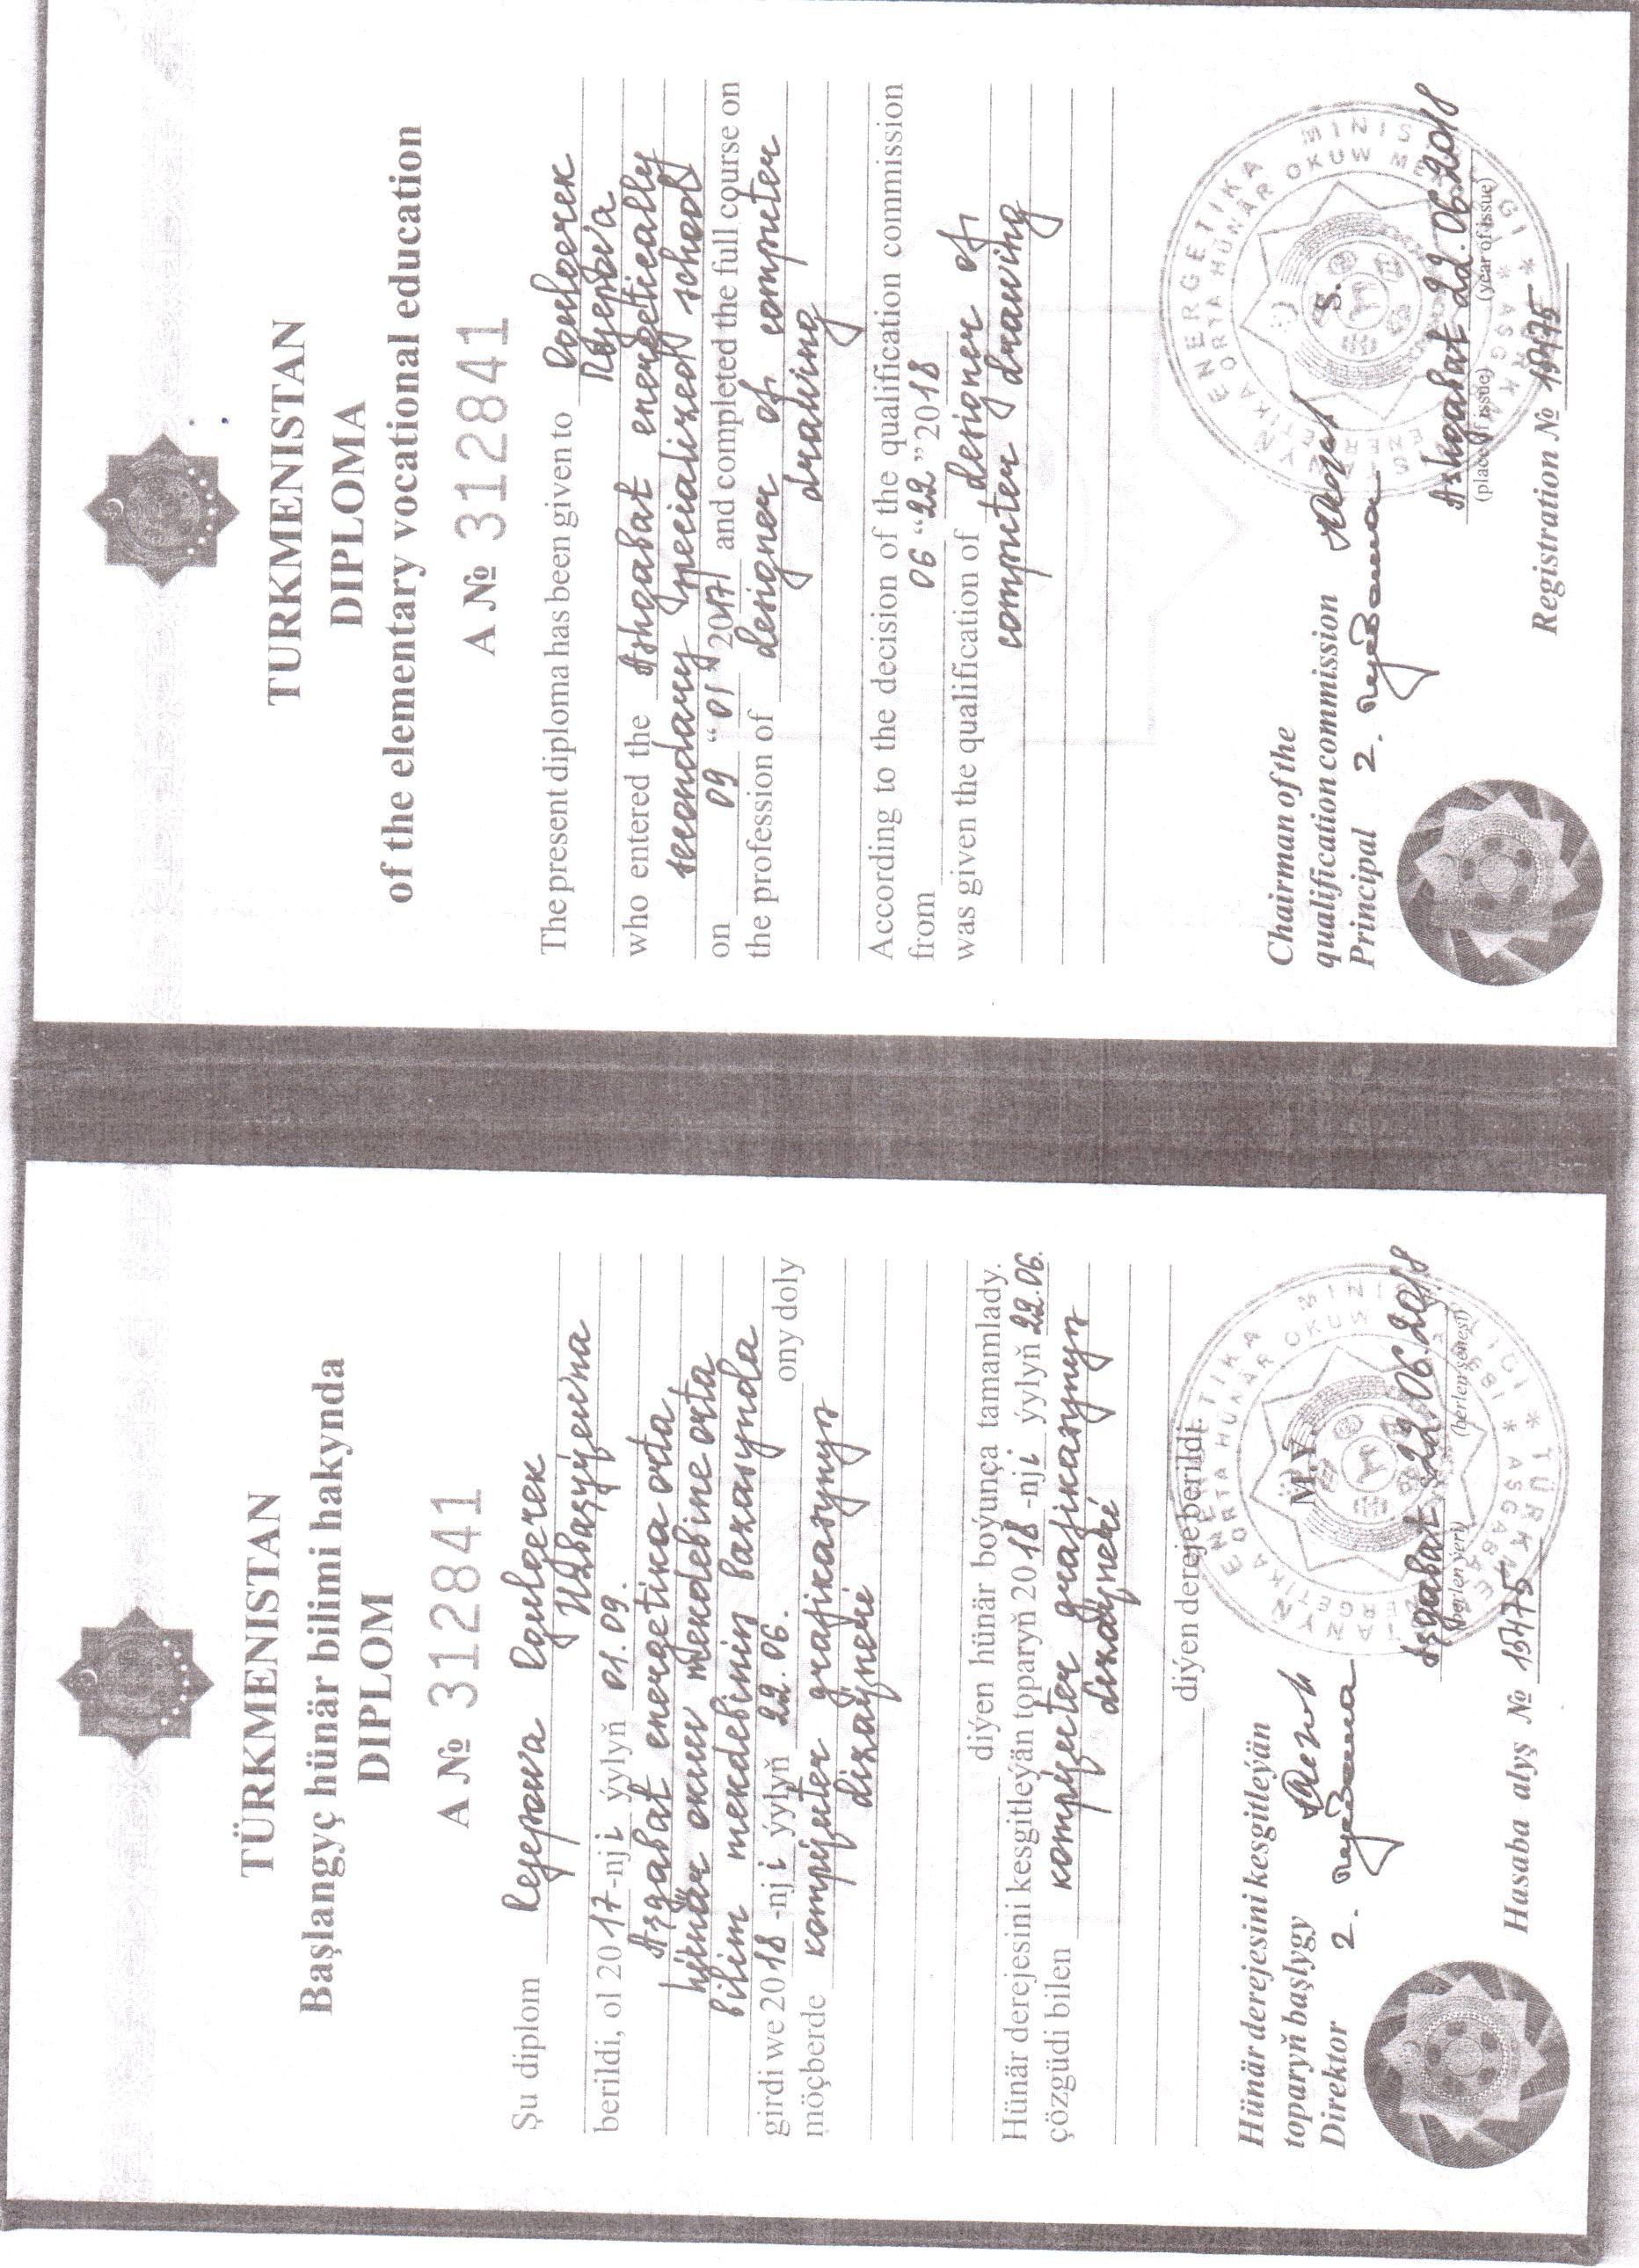 TÜRKMENISTAN
Başlangyç hünär bilimi hakynda
DIPLOM
A № 312841
Şu diplom Rejepowa
berildi, ol 2017-nji ýylyň 01.09.
Aşgabat energetika orta
hünär okuw mekdebine orta
bilim mekdebiniň bazasynda
girdi we 2018-nji ýylyň 22.06. ony doly
möçberde kompýuter grafikasynyň
dizaýneri
diýen hünär boýunça tamamlady.
Hünär derejesini kesgitleýän toparyň 2018-nji ýylyň 22.06.
çözgüdi bilen kompýuter grafikasynyň
dizaýneri
diýen dereje berildi.
Hünär derejesini kesgitleýän
toparyň başlygy
Direktor
M.Ý.
Aşgabat ş. 22.06.2018
(berlen ýeri) (berlen senesi)
Hasaba alyş № 15475
TURKMENISTAN
DIPLOMA
of the elementary vocational education
A № 312841
The present diploma has been given to
who entered the Ashgabat energetically
secondary specialized school
on 09 “01” 2017 and completed the full course on
the profession of designer of computer
drawing
According to the decision of the qualification commission
from 06 “22” 2018
was given the qualification of designer of
computer drawing
Chairman of the
qualification commission
Principal
S.
Ashgabat 22.06.2018
(place of issue) (year of issue)
Registration № 15475